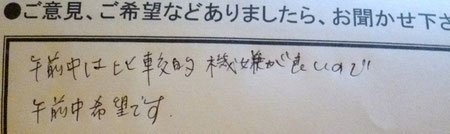 ●ご意見、ご希望などありましたら、お聞かせ下さ
午前中は比較的機嫌が良いので
午前中希望です.